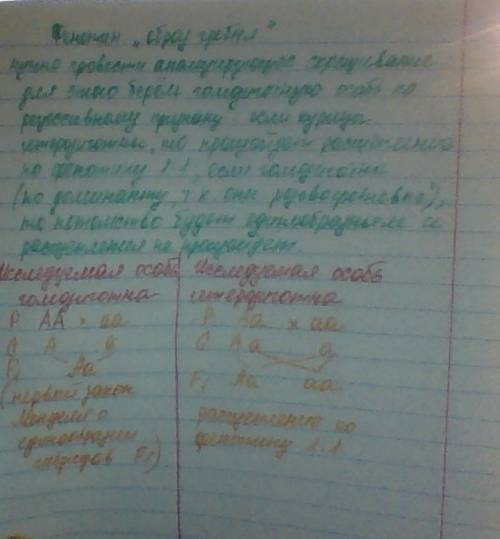 Феномен "образ гребня"
нужно провести анализирующее скрещивание
для этого берем гомозиготную особь по
рецессивному признаку если курица
гетерозиготна, то произойдет расщепление
по фенотипу 1:1, если гомозиготна
(по доминанту, т к они розовогребневые),
то потомство будет единообразным и
расщепления не произойдет.
Исследуемая особь
гомозиготна
P. AA × aa
G A a
F1 Aa
(первый закон
Менделя о
единообразии
гибридов F1)
Исследуемая особь
гетерозиготна
P. Aa × aa
G A a a
F1 Aa aa
расщепление по
фенотипу 1:1